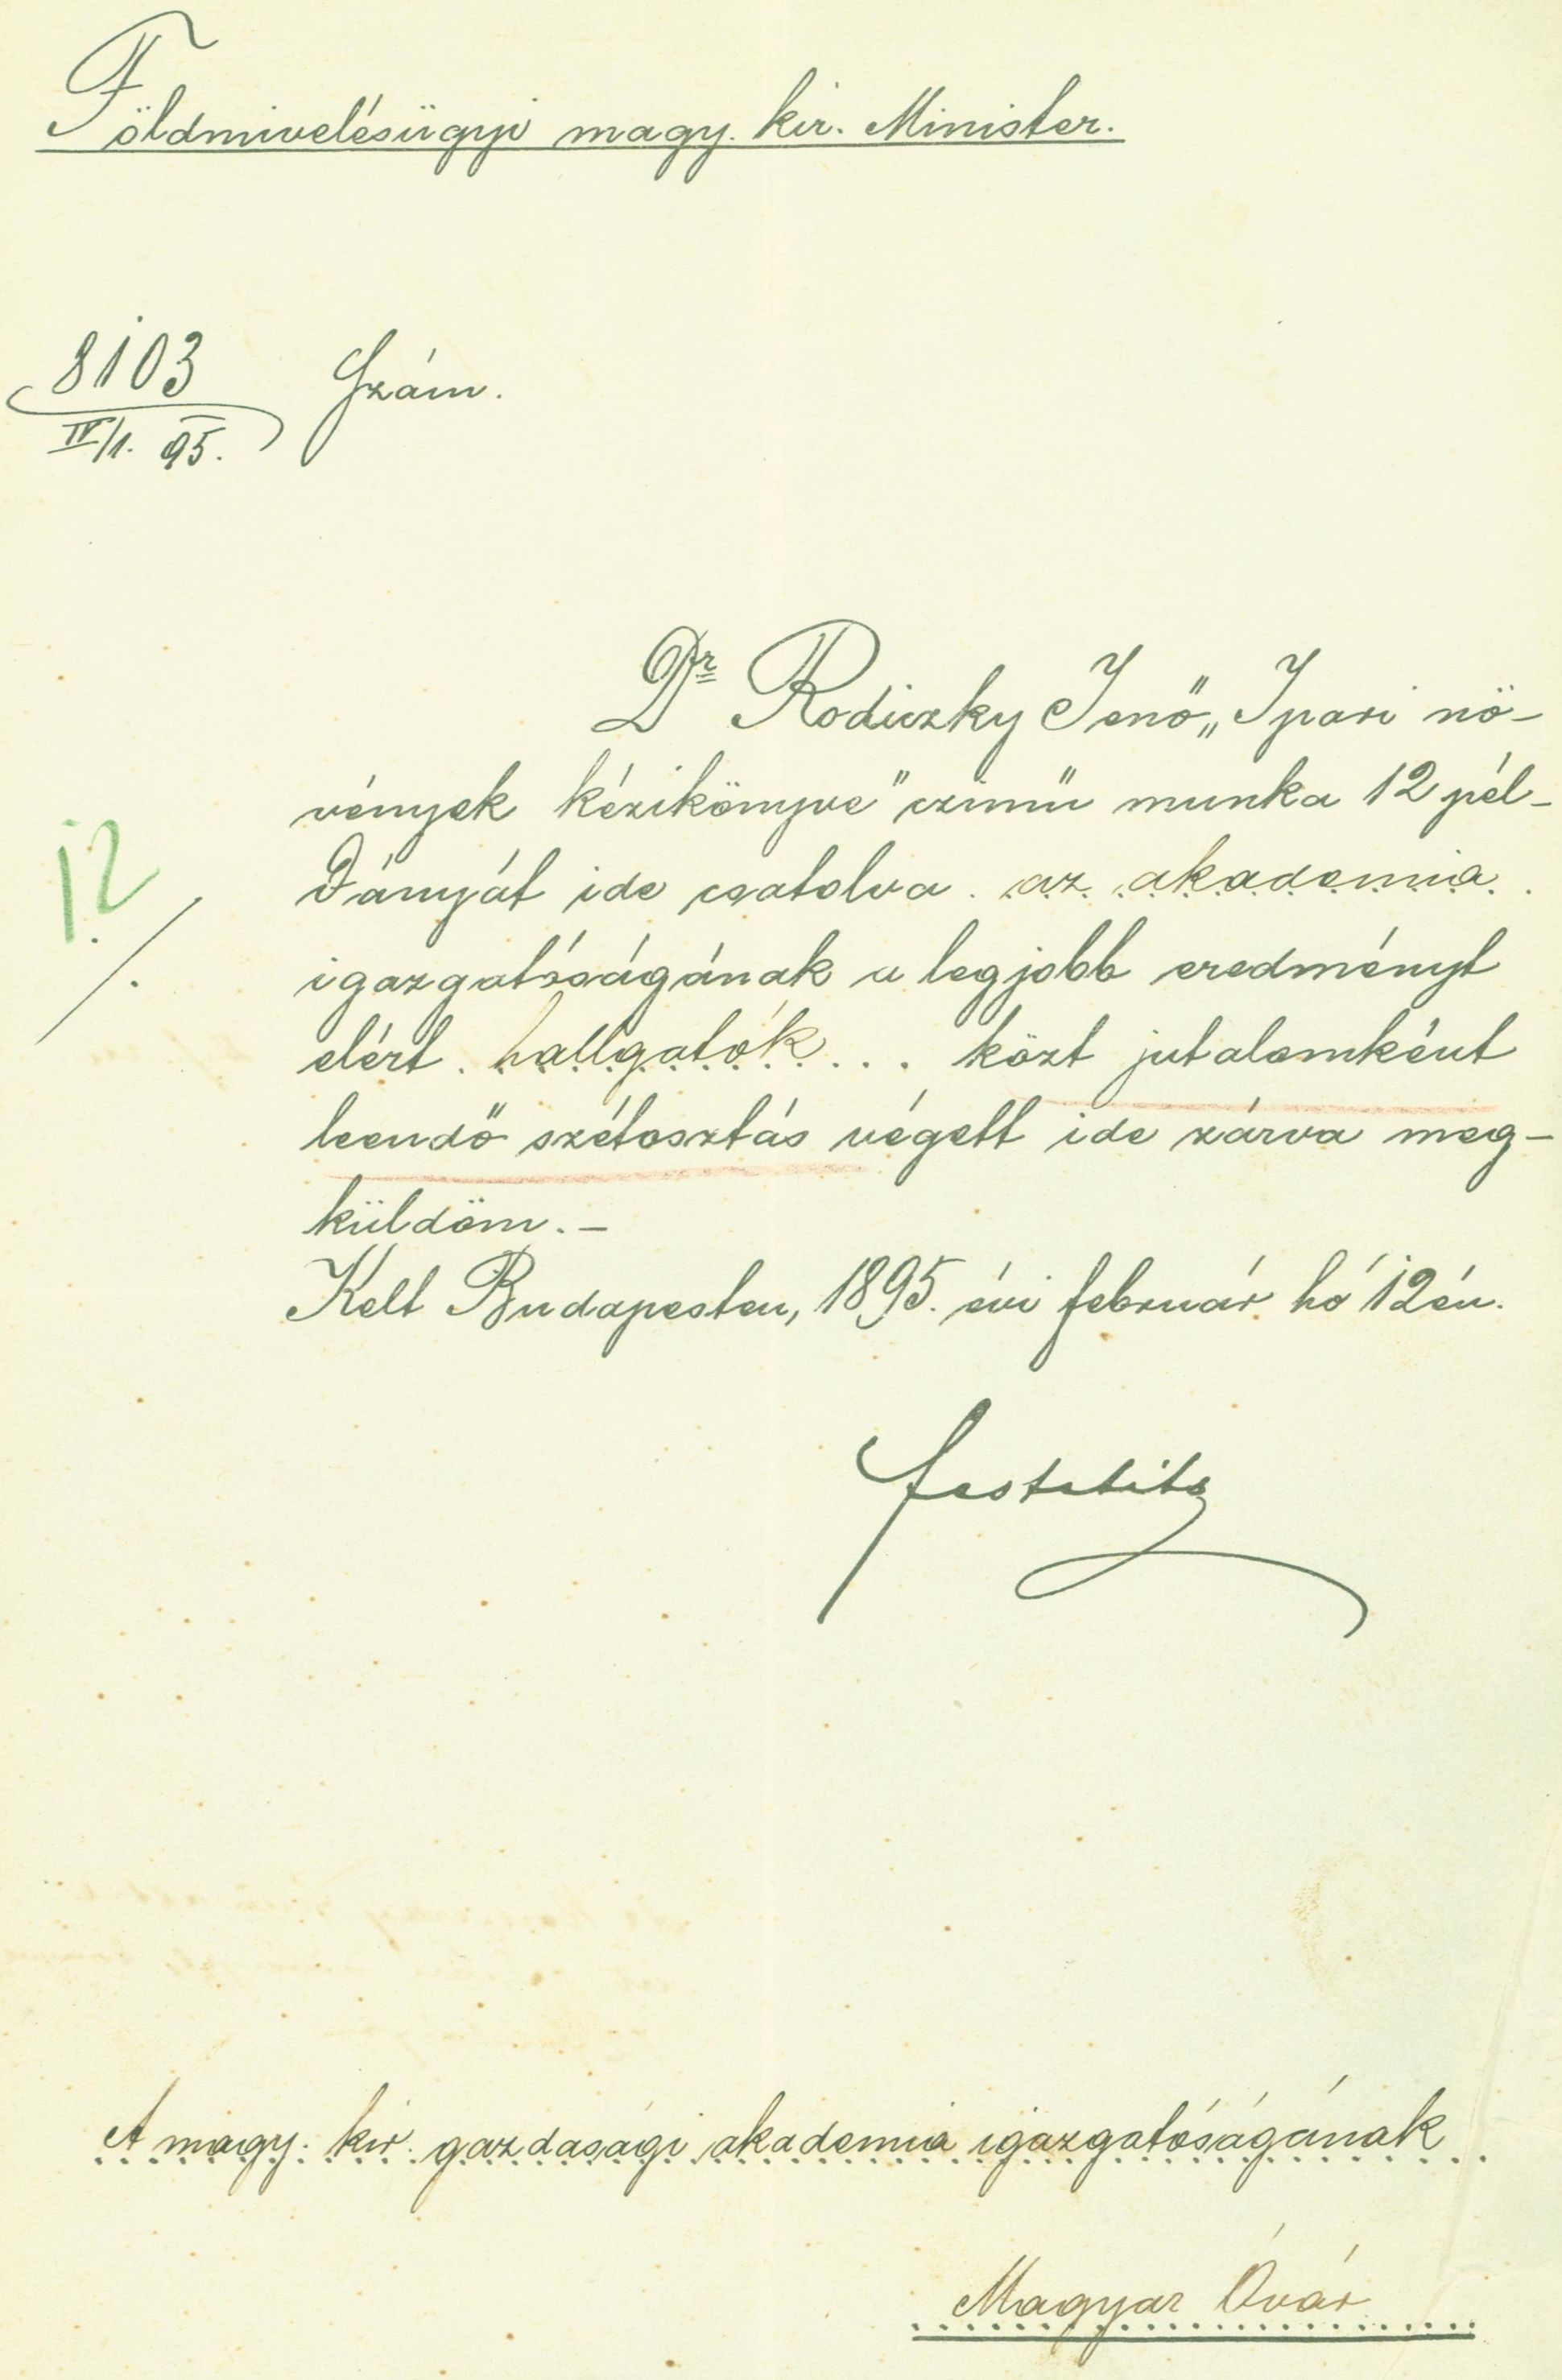 Földmivelésügyi magy. kir. Minister.
8103 Szám.
IV/1. 95.
Dr Rodiczky Jenő „Ipari nö-
vények kézikönyve" czimű munka 12 pél-
12 dányát ide csatolva . az akademia .
/. igazgatóságának a legjobb eredményt
elért . hallgatók . . . közt jutalomként
leendő szétosztás végett ide zárva meg-
küldöm. –
Kelt Budapesten, 1895. évi február hó 12én.
Festetits
A magy. kir. gazdasági akademia igazgatóságának
Magyar Óvár